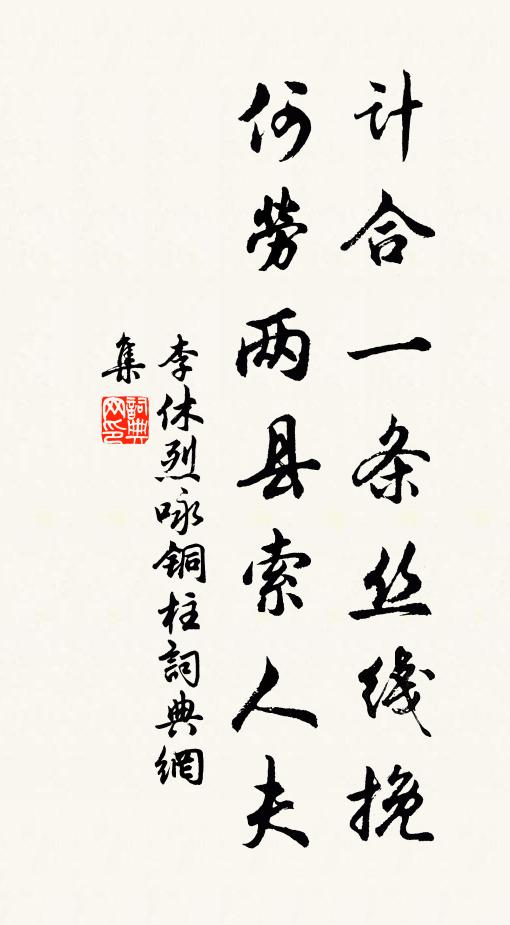 计合一条丝线挽
何劳两县索人夫
李休烈咏铜柱詞典網
集
詞典
网印